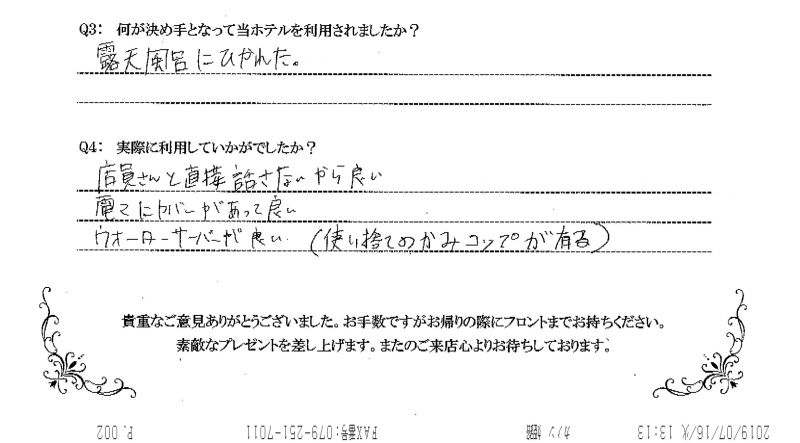 Q3： 何が決め手となって当ホテルを利用されましたか？
露天風呂にひかれた。
Q4： 実際に利用していかがでしたか？
店員さんと直接話さないから良い
電マにカバーがあって良い
ウォーターサーバーが良い (使い捨てのかみコップが有る)
貴重なご意見ありがとうございました。お手数ですがお帰りの際にフロントまでお持ちください。
素敵なプレゼントを差し上げます。またのご来店心よりお待ちしております。
2019/07/16/火 13:13 カノン FAX番号:079-251-7011 P. 002